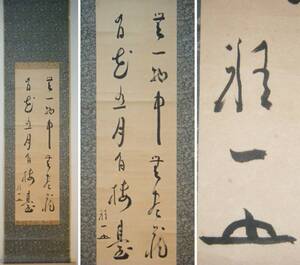 無一物中無尽蔵
有花有月有楼臺
無一物中無尽蔵
有花有月有楼臺